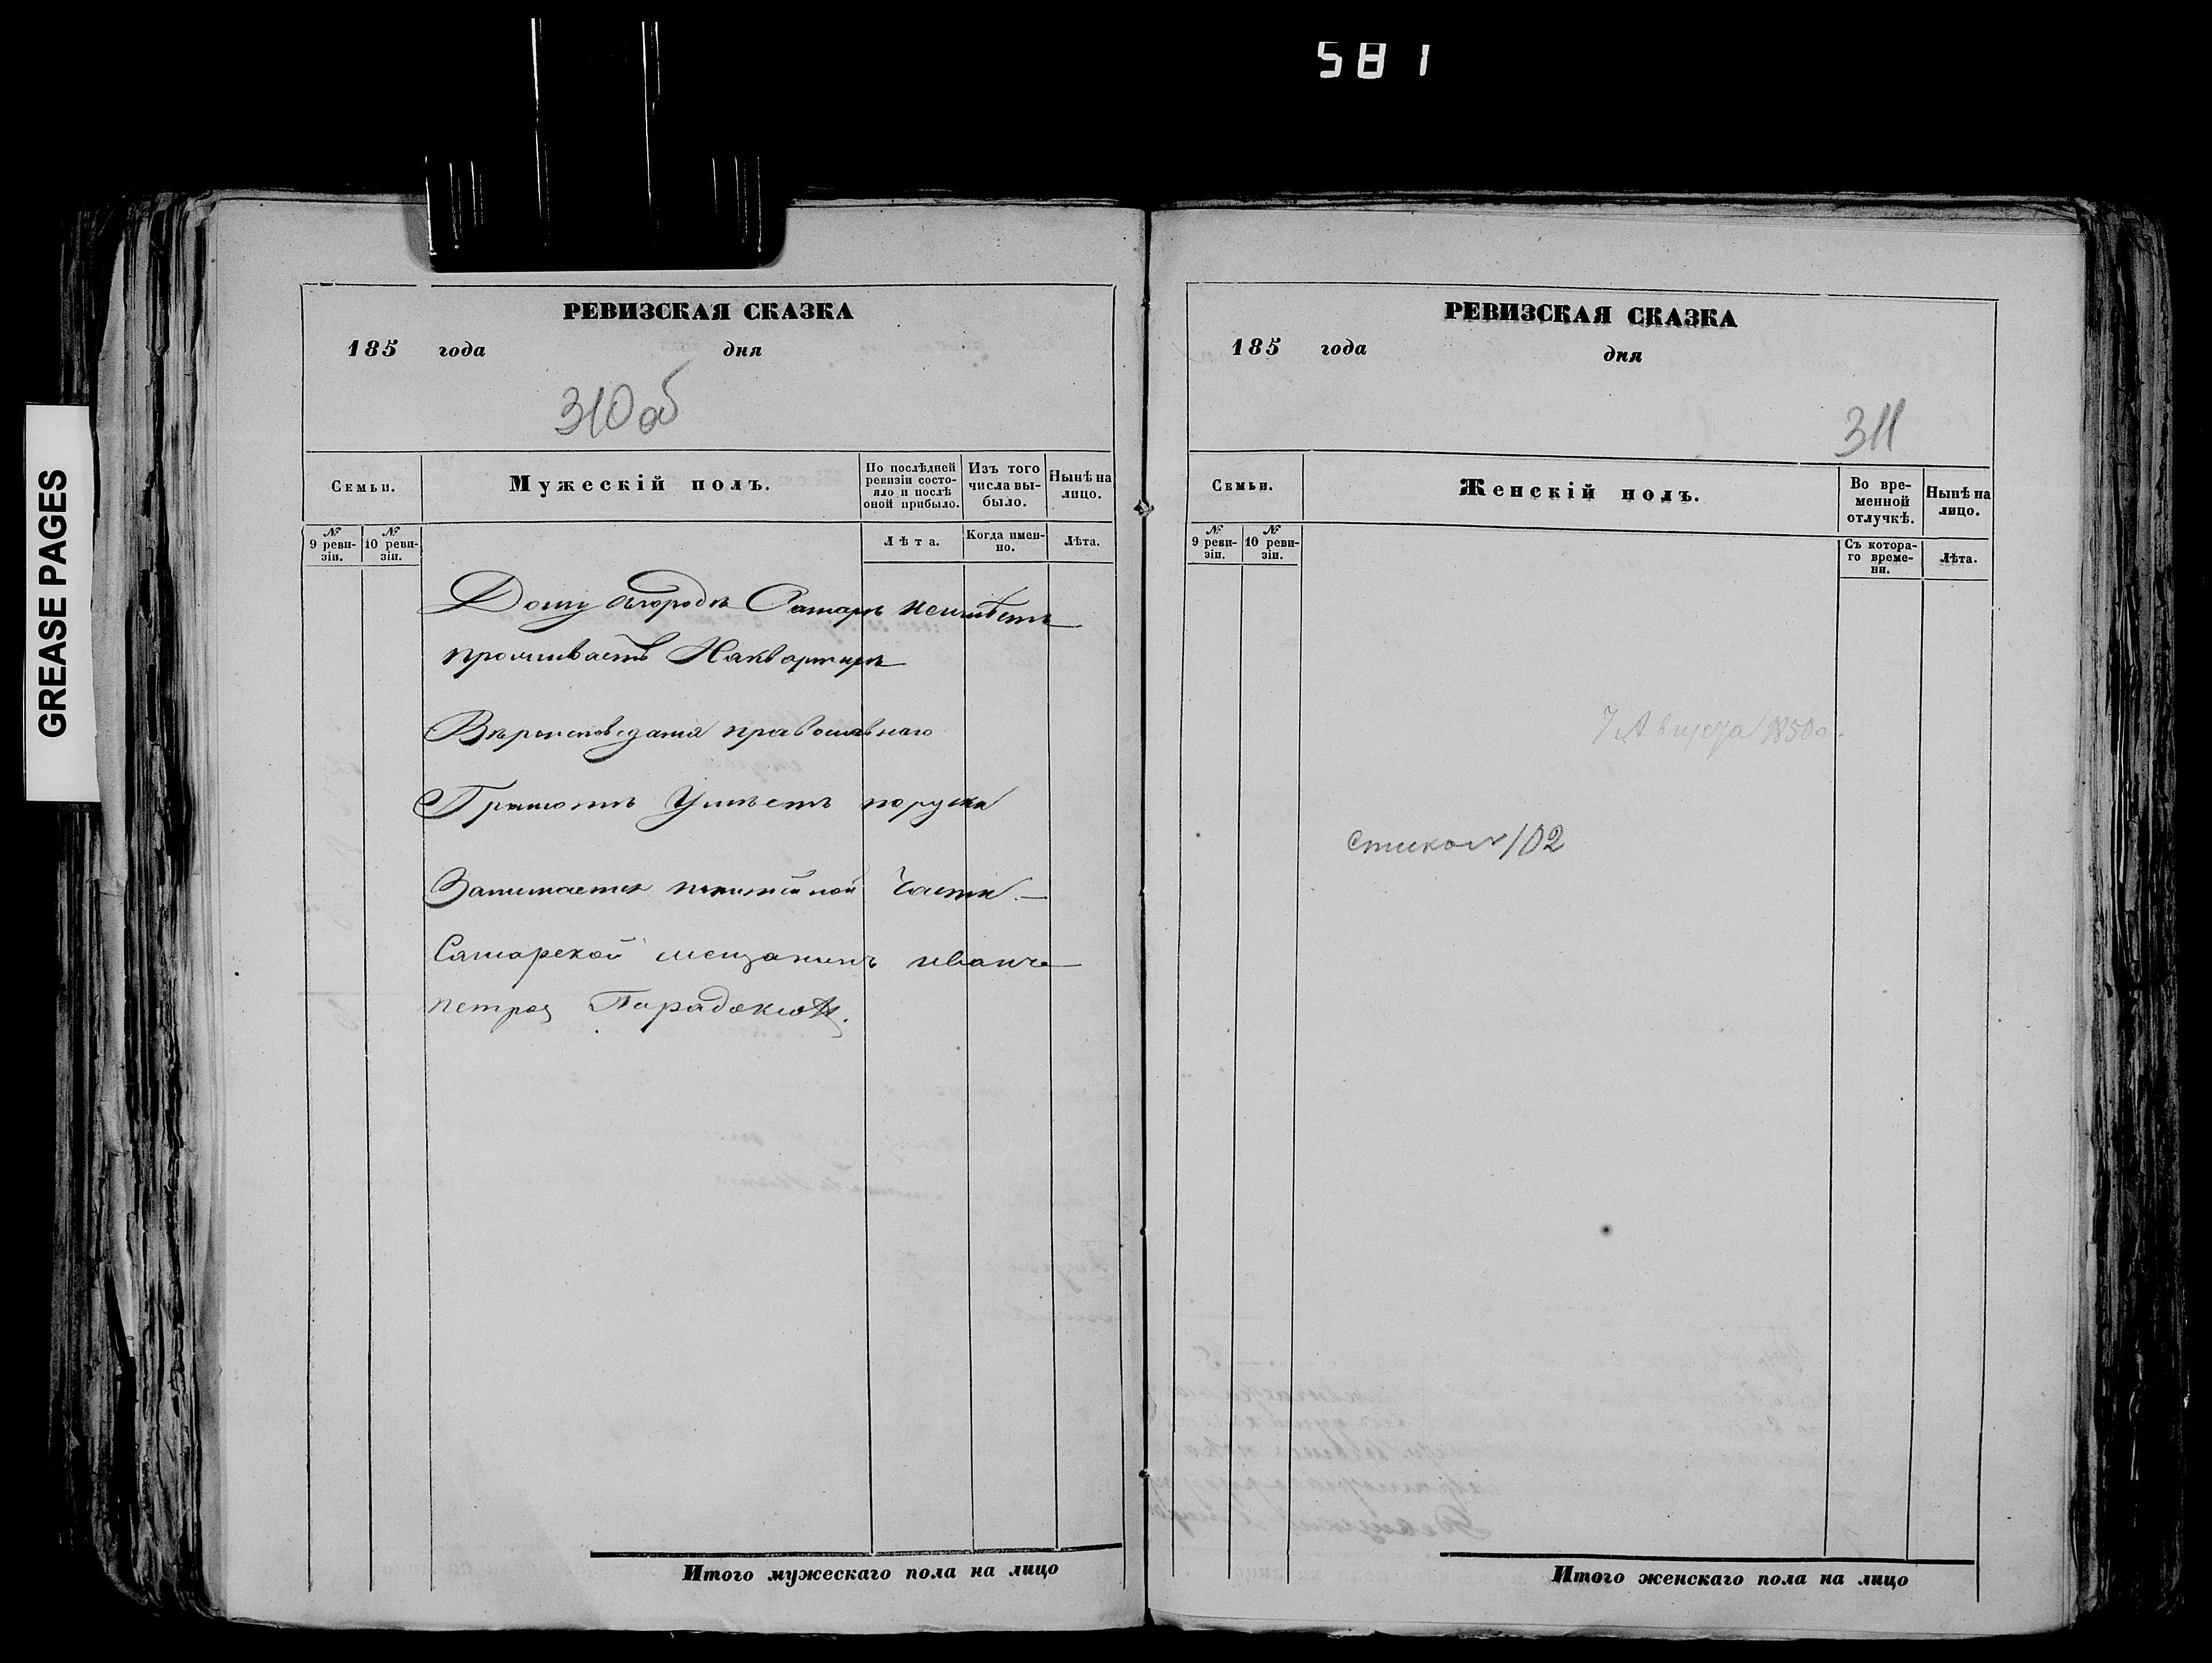 581
GREASE PAGES
РЕВИЗСКАЯ СКАЗКА
185 года дня
310 об
Семьи.
Мужескій полъ.
По послѣдней ревизіи состояло и послѣ оной прибыло.
Изъ того числа выбыло.
Нынѣ на лицо.
№ 9 ревизіи.
№ 10 ревизіи.
Лѣта.
Когда именно.
Лѣта.
Дому вгородѣ Самарѣ неимѣетъ
проживаетъ Наквартирѣ
Вѣроисповеданiя православнаго
Грамотѣ Умѣетъ поруски
Занимается питейной Части. —
Самарской мещанинъ иванъ
петров Парадоксов.
Итого мужескаго пола на лицо
РЕВИЗСКАЯ СКАЗКА
185 года дня
311
Семьи.
Женскій полъ.
Во временной отлучкѣ.
Нынѣ на лицо.
№ 9 ревизіи.
№ 10 ревизіи.
Съ котораго времени.
Лѣта.
7 Августа 1850 г.
102
Итого женскаго пола на лицо